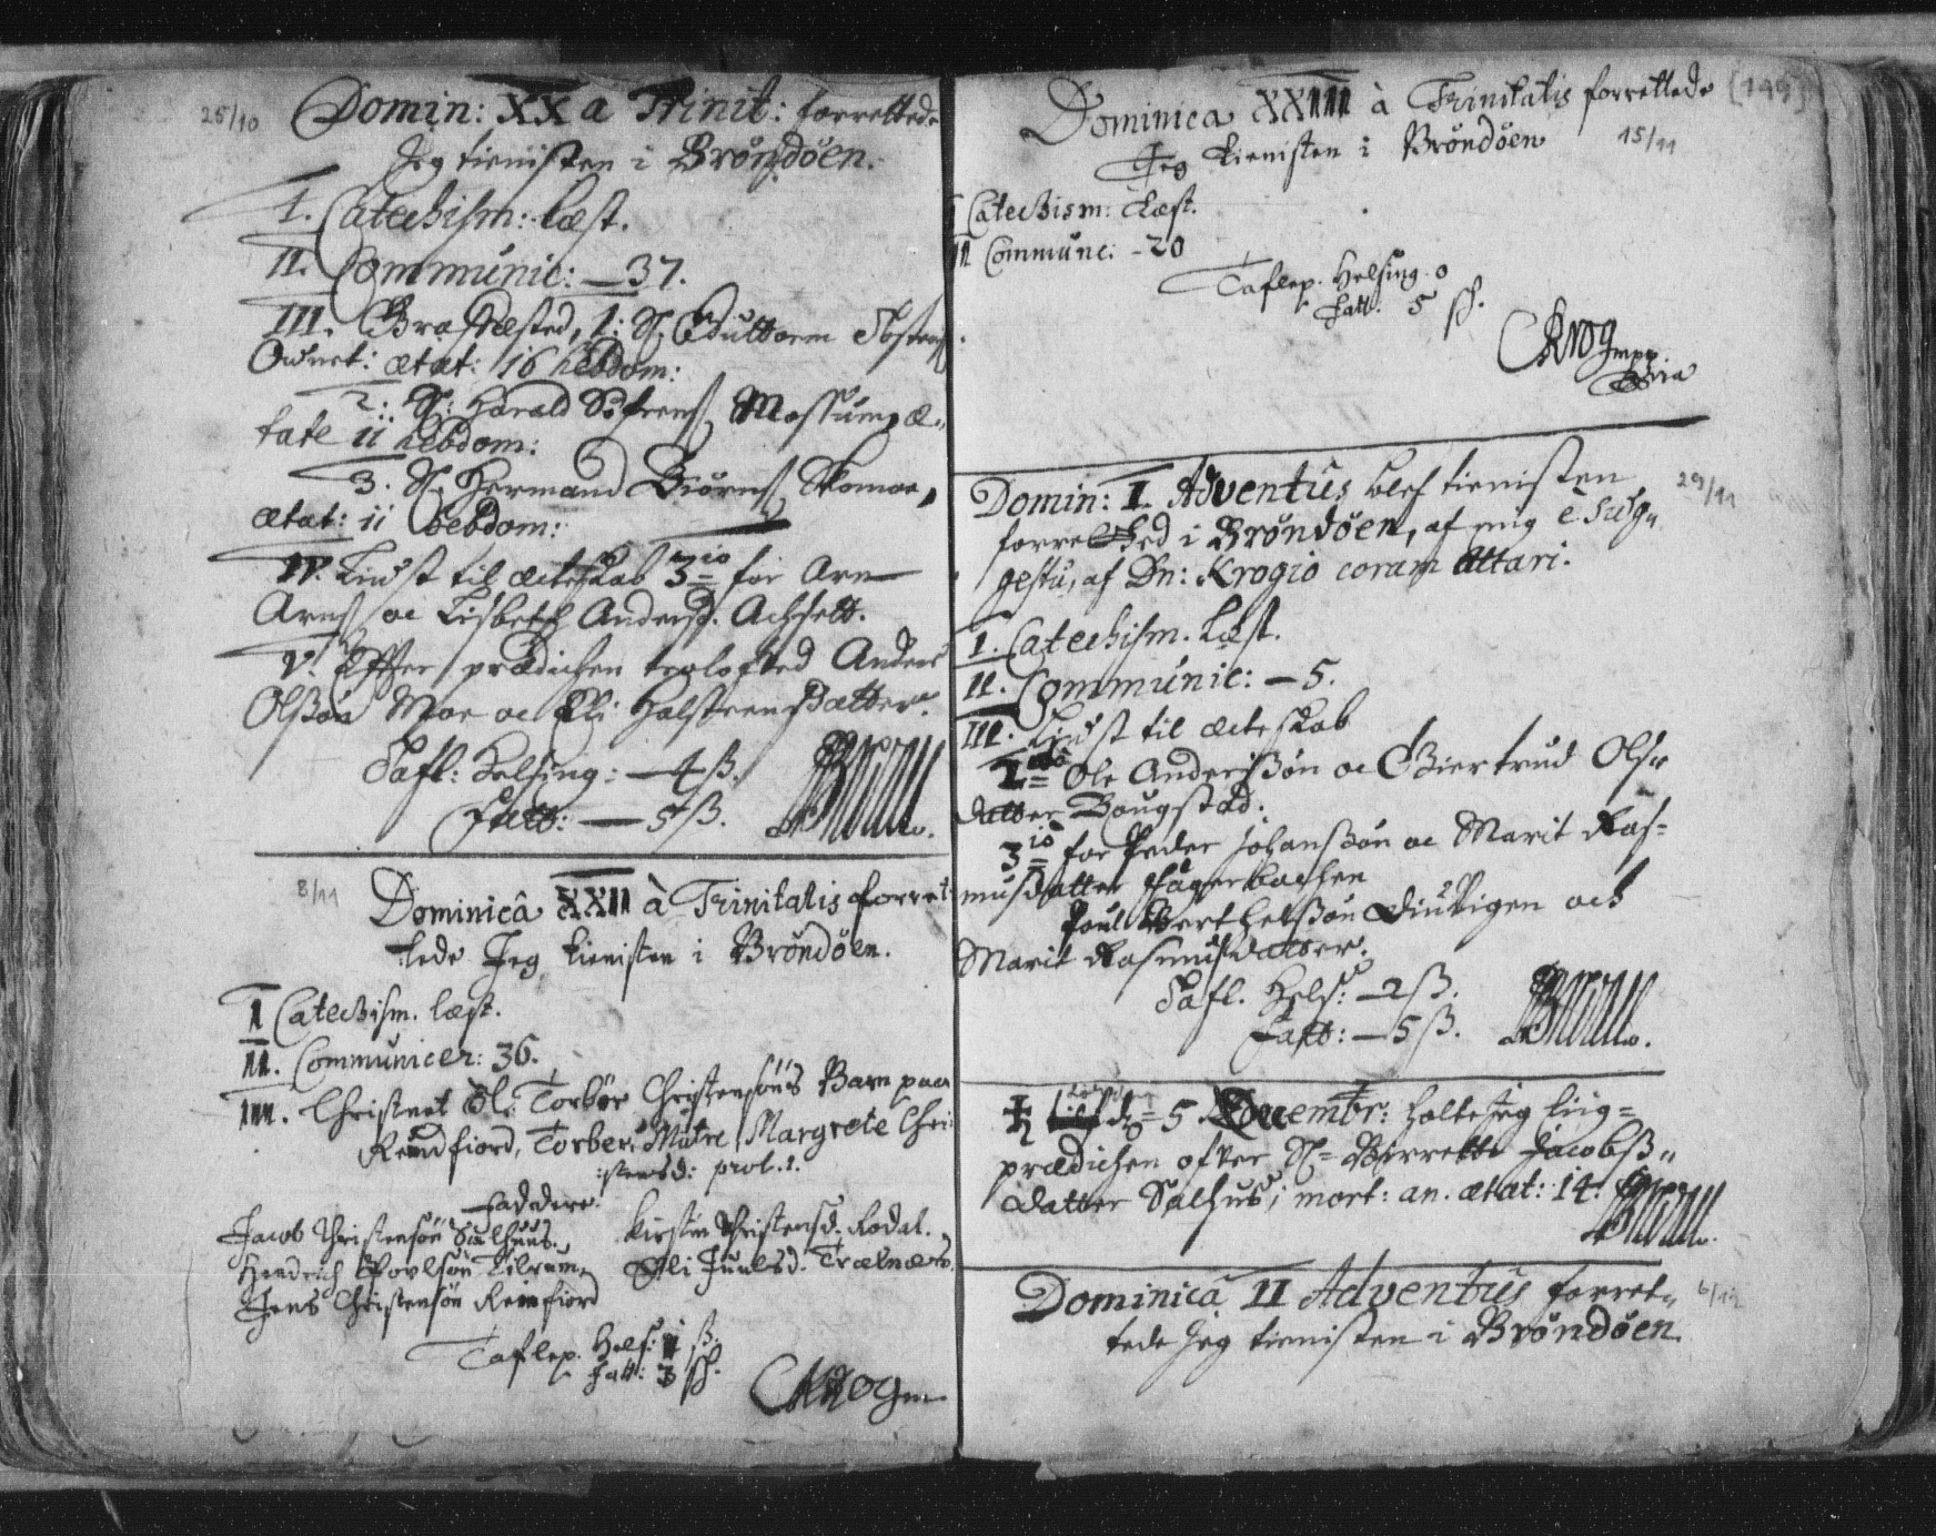 25/10
Domin: XX a Trinit: forrettede
Jeg tienisten i Brøndøen.
I. Catechism: læst.
II. Communic: – 37.
III. Græsfæsted, 1: S. Guttorm
ætat: 16 hebdom:
2: S: Harald Søfrens. Mossum, æ-
tate 11 hebdom:
3. S. Hermand Biørns. Skomoe,
ætat: 11 hebdom:
IV. Liust til ächteskab 3io for Arn
Arns. oc Lisbeth Andersd. Achselt.
V. Effter prædichen trolofved Anders
Olßøn Moe oc Eli Halsteensdatter.
Tafl: Helsing: – 4 ß.
Fatt: – 5 ß.
8/11
Dominicâ XXII à Trinitatis forret-
tede Jeg tienisten i Brøndøen.
I Catechism. læst.
II. Communicer: 36.
III. Christnet Ole Torbør Christensøns Barn paa
Reindfiord, Torber. Mutre Margrete Chri-
stensd: prol. 1.
Faddere.
Jacob Christensøn Salhuus.
Hendrich Povlsøn Tilrum.
Jens Christensøn Reinfiord
Kirstin Christensd. Rodal.
Eli Juulsd. Trælnæs.
Taflep. Hels: 1 ß.
Fatt: 3 sh.
Krog
[199]
Dominica XXIII à Trinitatis forrettede
Jeg tienisten i Brøndøen
15/11
I Catechism: Læst.
II Commune: – 20
Taflep. Helsing. 0
Fatt. 5 sh.
Krog mpp.
Domin: I. Adventûs blef tienisten
29/11
forretted i Brøndøen, af mig è sug-
gestu, af Dn: Krogio coram altari.
I. Catechism. læst.
II. Communic: – 5.
III. Liust til ächteskab
Ole Andersßøn oc Giertrud Ols-
datter Bougstad.
3io for Peder Johanßøn oc Marit Ras-
musdatter Fagerbachen
Poul Berthelßøn Diuvigen och
Marit Rasmusdatter.
Tafl. Hels: – 2 ß.
Fatt: – 5 ß.
5 holte Jeg liig-
prædichen ofver S. Birrette Jacobß-
datter Salhus, mort: an. ætat: 14.
Dominicâ II Adventûs forret-
6/12
tede Jeg tienisten i Brøndøen.